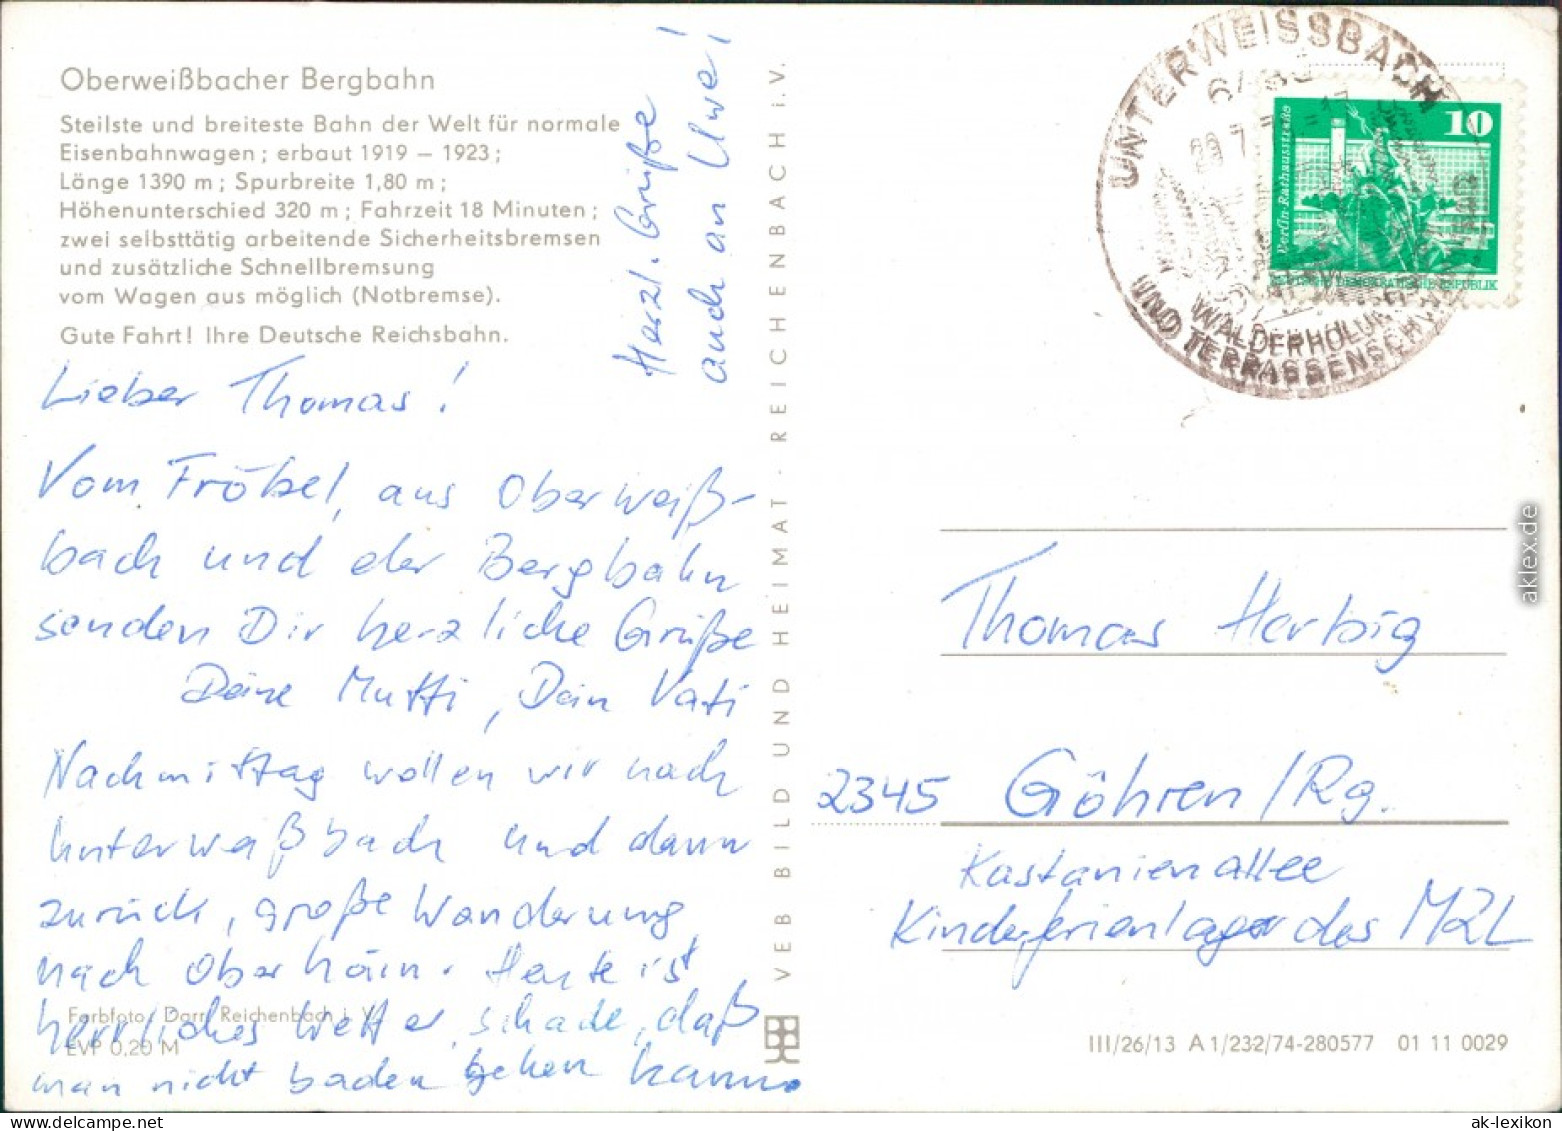 Oberweißbacher Bergbahn
Steilste und breiteste Bahn der Welt für normale
Eisenbahnwagen; erbaut 1919 – 1923;
Länge 1390 m; Spurbreite 1,80 m;
Höhenunterschied 320 m; Fahrzeit 18 Minuten;
zwei selbsttätig arbeitende Sicherheitsbremsen
und zusätzliche Schnellbremsung
vom Wagen aus möglich (Notbremse).
Gute Fahrt! Ihre Deutsche Reichsbahn.
Herzl. Grüße!
auch an Uwe!
Lieber Thomas!
Vom Fröbel, aus Oberweiß-
bach und der Bergbahn
senden Dir herzliche Grüße
Deine Mutti, Dein Vati
Nachmittag wollen wir nach
Unterweißbach und dann
zurück, große Wanderung
nach Oberhain. Heute ist
herrliches Wetter, schade, daß
man nicht baden gehen kann.
Farbfoto: Darr, Reichenbach i. V.
EVP 0,20 M
VEB BILD UND HEIMAT · REICHENBACH i. V.
UNTERWEISSBACH
WALDERHOLUN
UND TERRASSENSCHW
10
Berlin·Rathausstraße
DEUTSCHE DEMOKRATISCHE REPUBLIK
Thomas Herbig
2345 Göhren/Rg.
Kastanienallee
Kinderferienlager des MZL
III/26/13 A 1/232/74-280577 01 11 0029
aklex.de
ak-lexikon